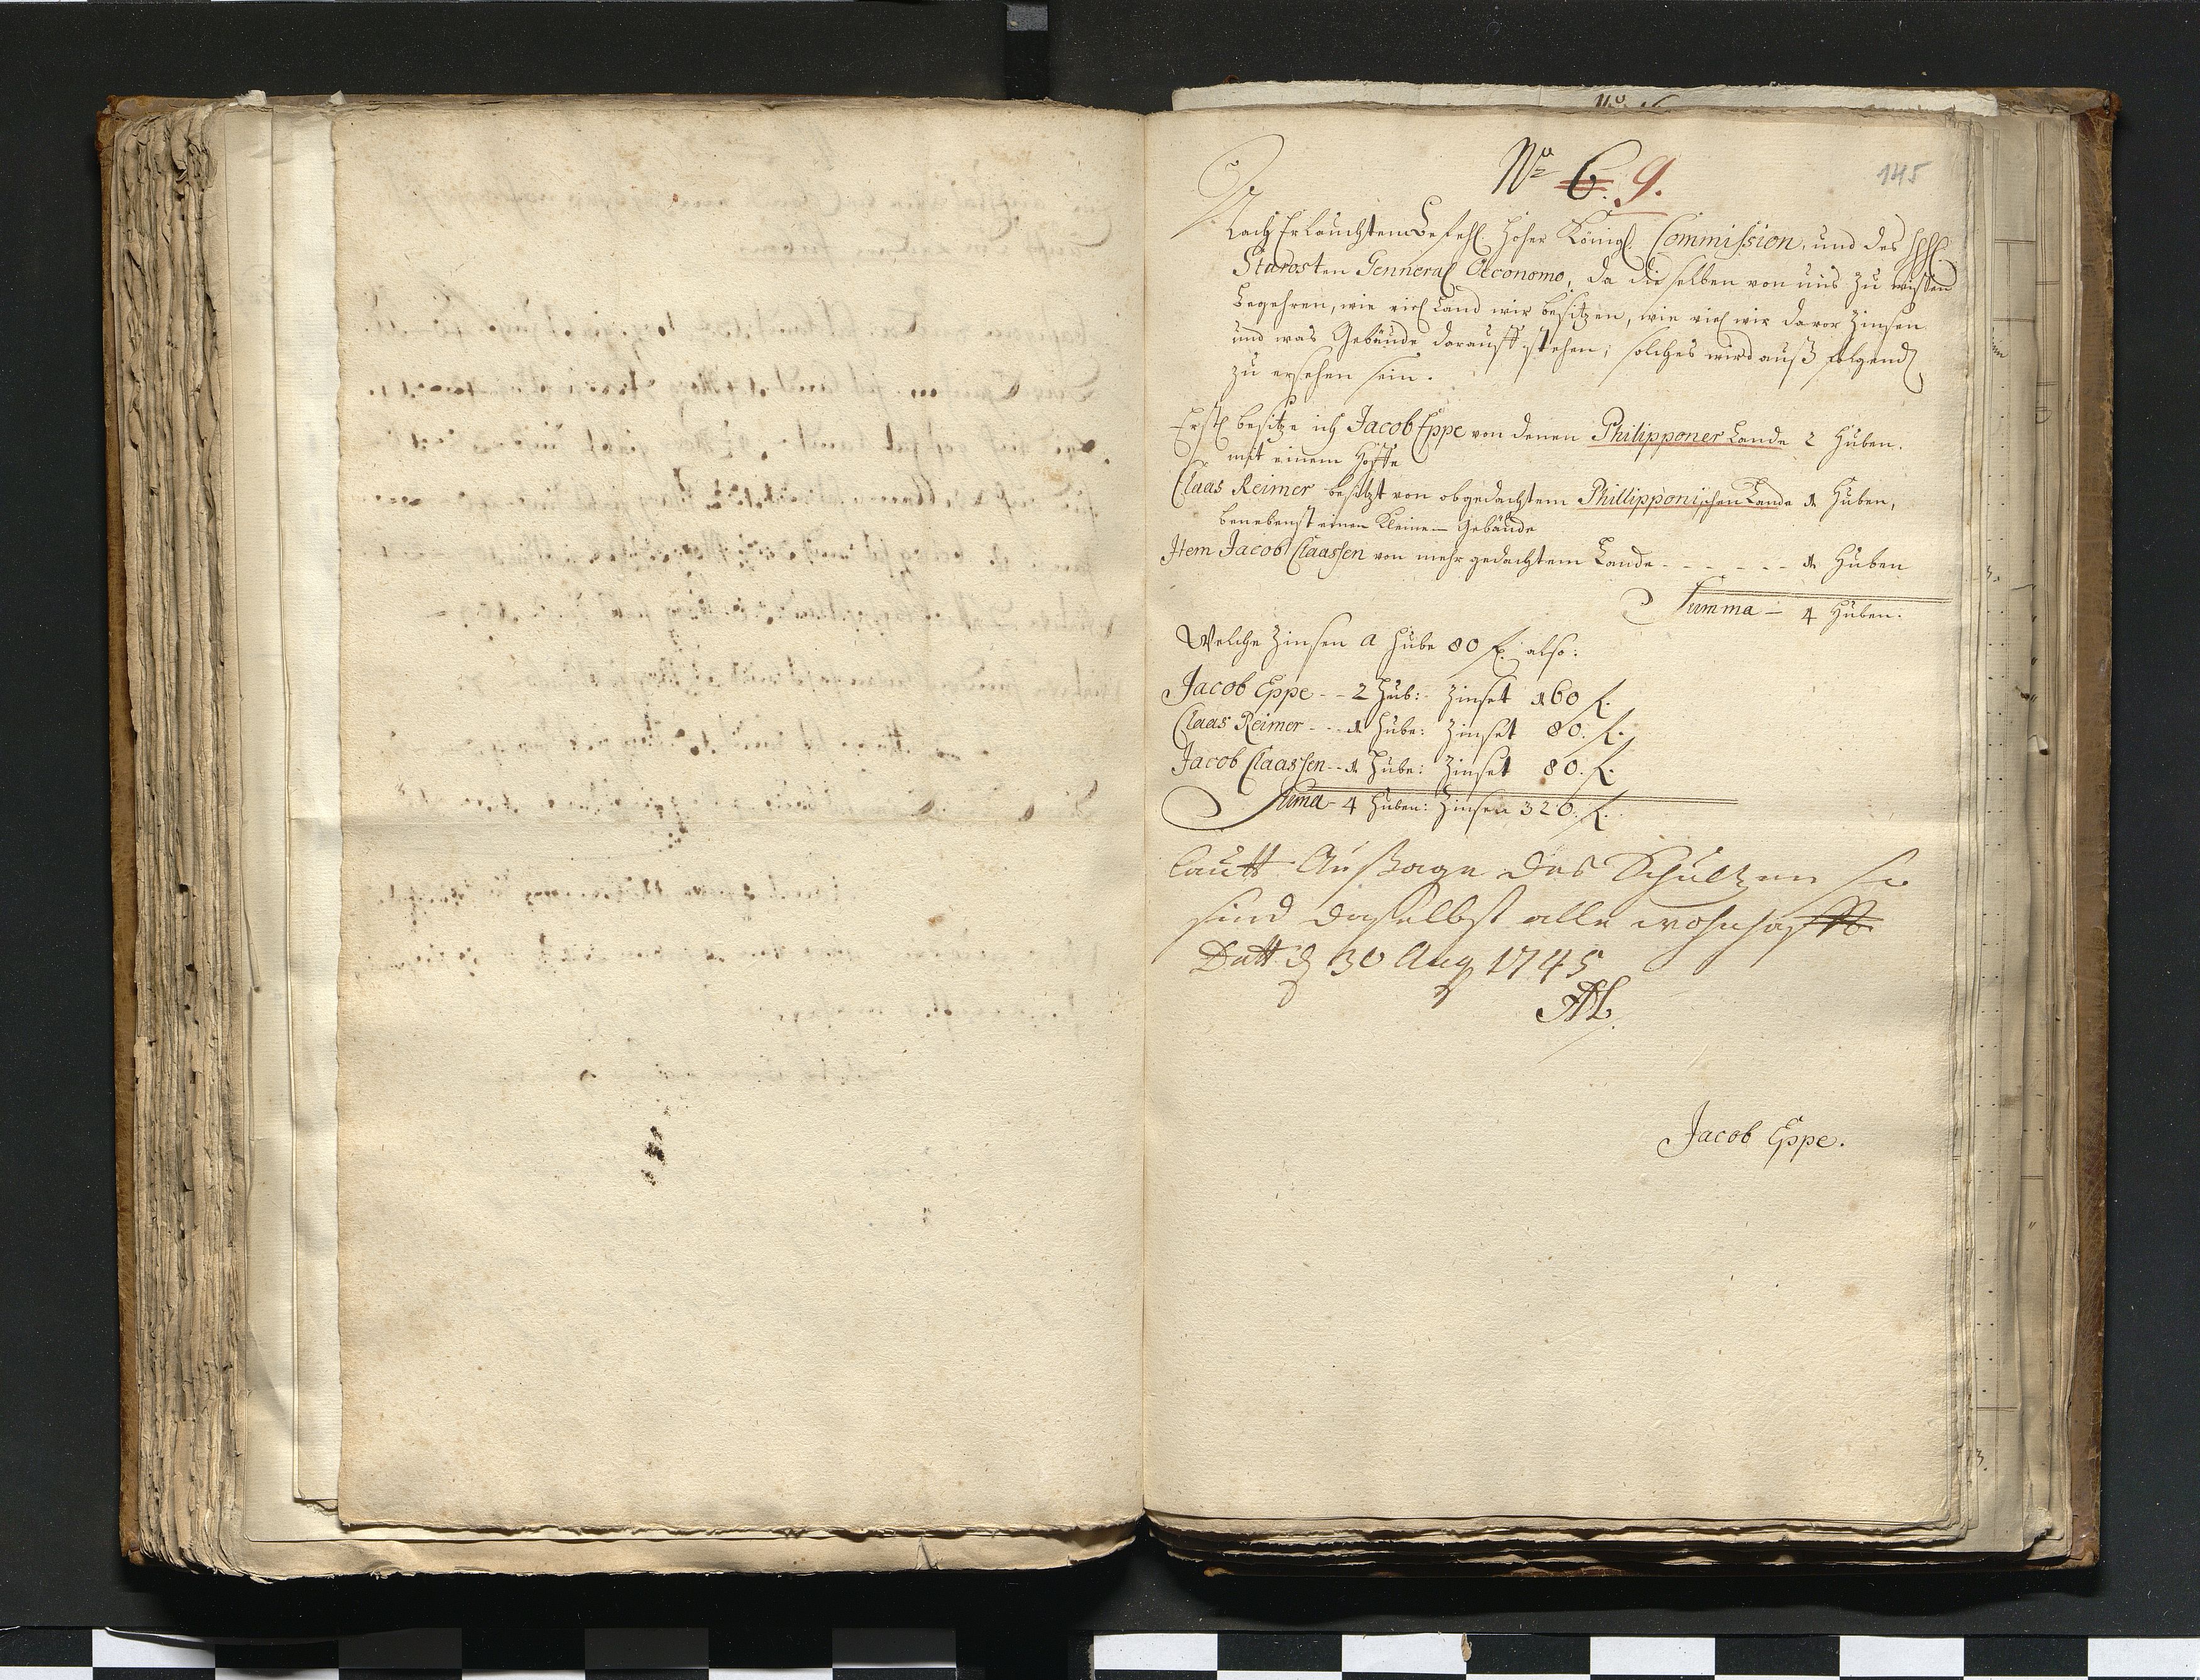 145
No 6. 9.
Nach Erlauchten Befehl Hoher Königl. Commission, und des
Starosten Genneral Oeconomo, da dieselben von uns zu wissen
begehren, wie viel Land wir besitzen, wie viel wir davor Zinsen
und was Gebäude darauff stehen; solches wird auß folgend
zu ersehen sein.
Erstl besitze ich Jacob Eppe von denen Philipponer Lande 2 Huben.
mit einem Hoffe
Claas Reimer besitzt von obgedachtem Phillipponischen Lande 1 Huben,
benebenst einen Kleinen Gebäude
Item Jacob Claassen von mehr gedachtem Lande - - - - - - 1 Huben
Summa - 4 Huben.
Welche Zinsen a Hube 80 f. also:
Jacob Eppe - - 2 Hub: Zinset 160 f.
Claas Reimer - - - 1 Hube: Zinset 80. f.
Jacob Claassen - - 1 Hube: Zinset 80. f.
Suma - 4 Huben: Zinsen 320. f.
Lautt Außage des Schultzen so
sind daselbst alle wohnhafft
Datt d 30 Aug 1745
Jacob Eppe.